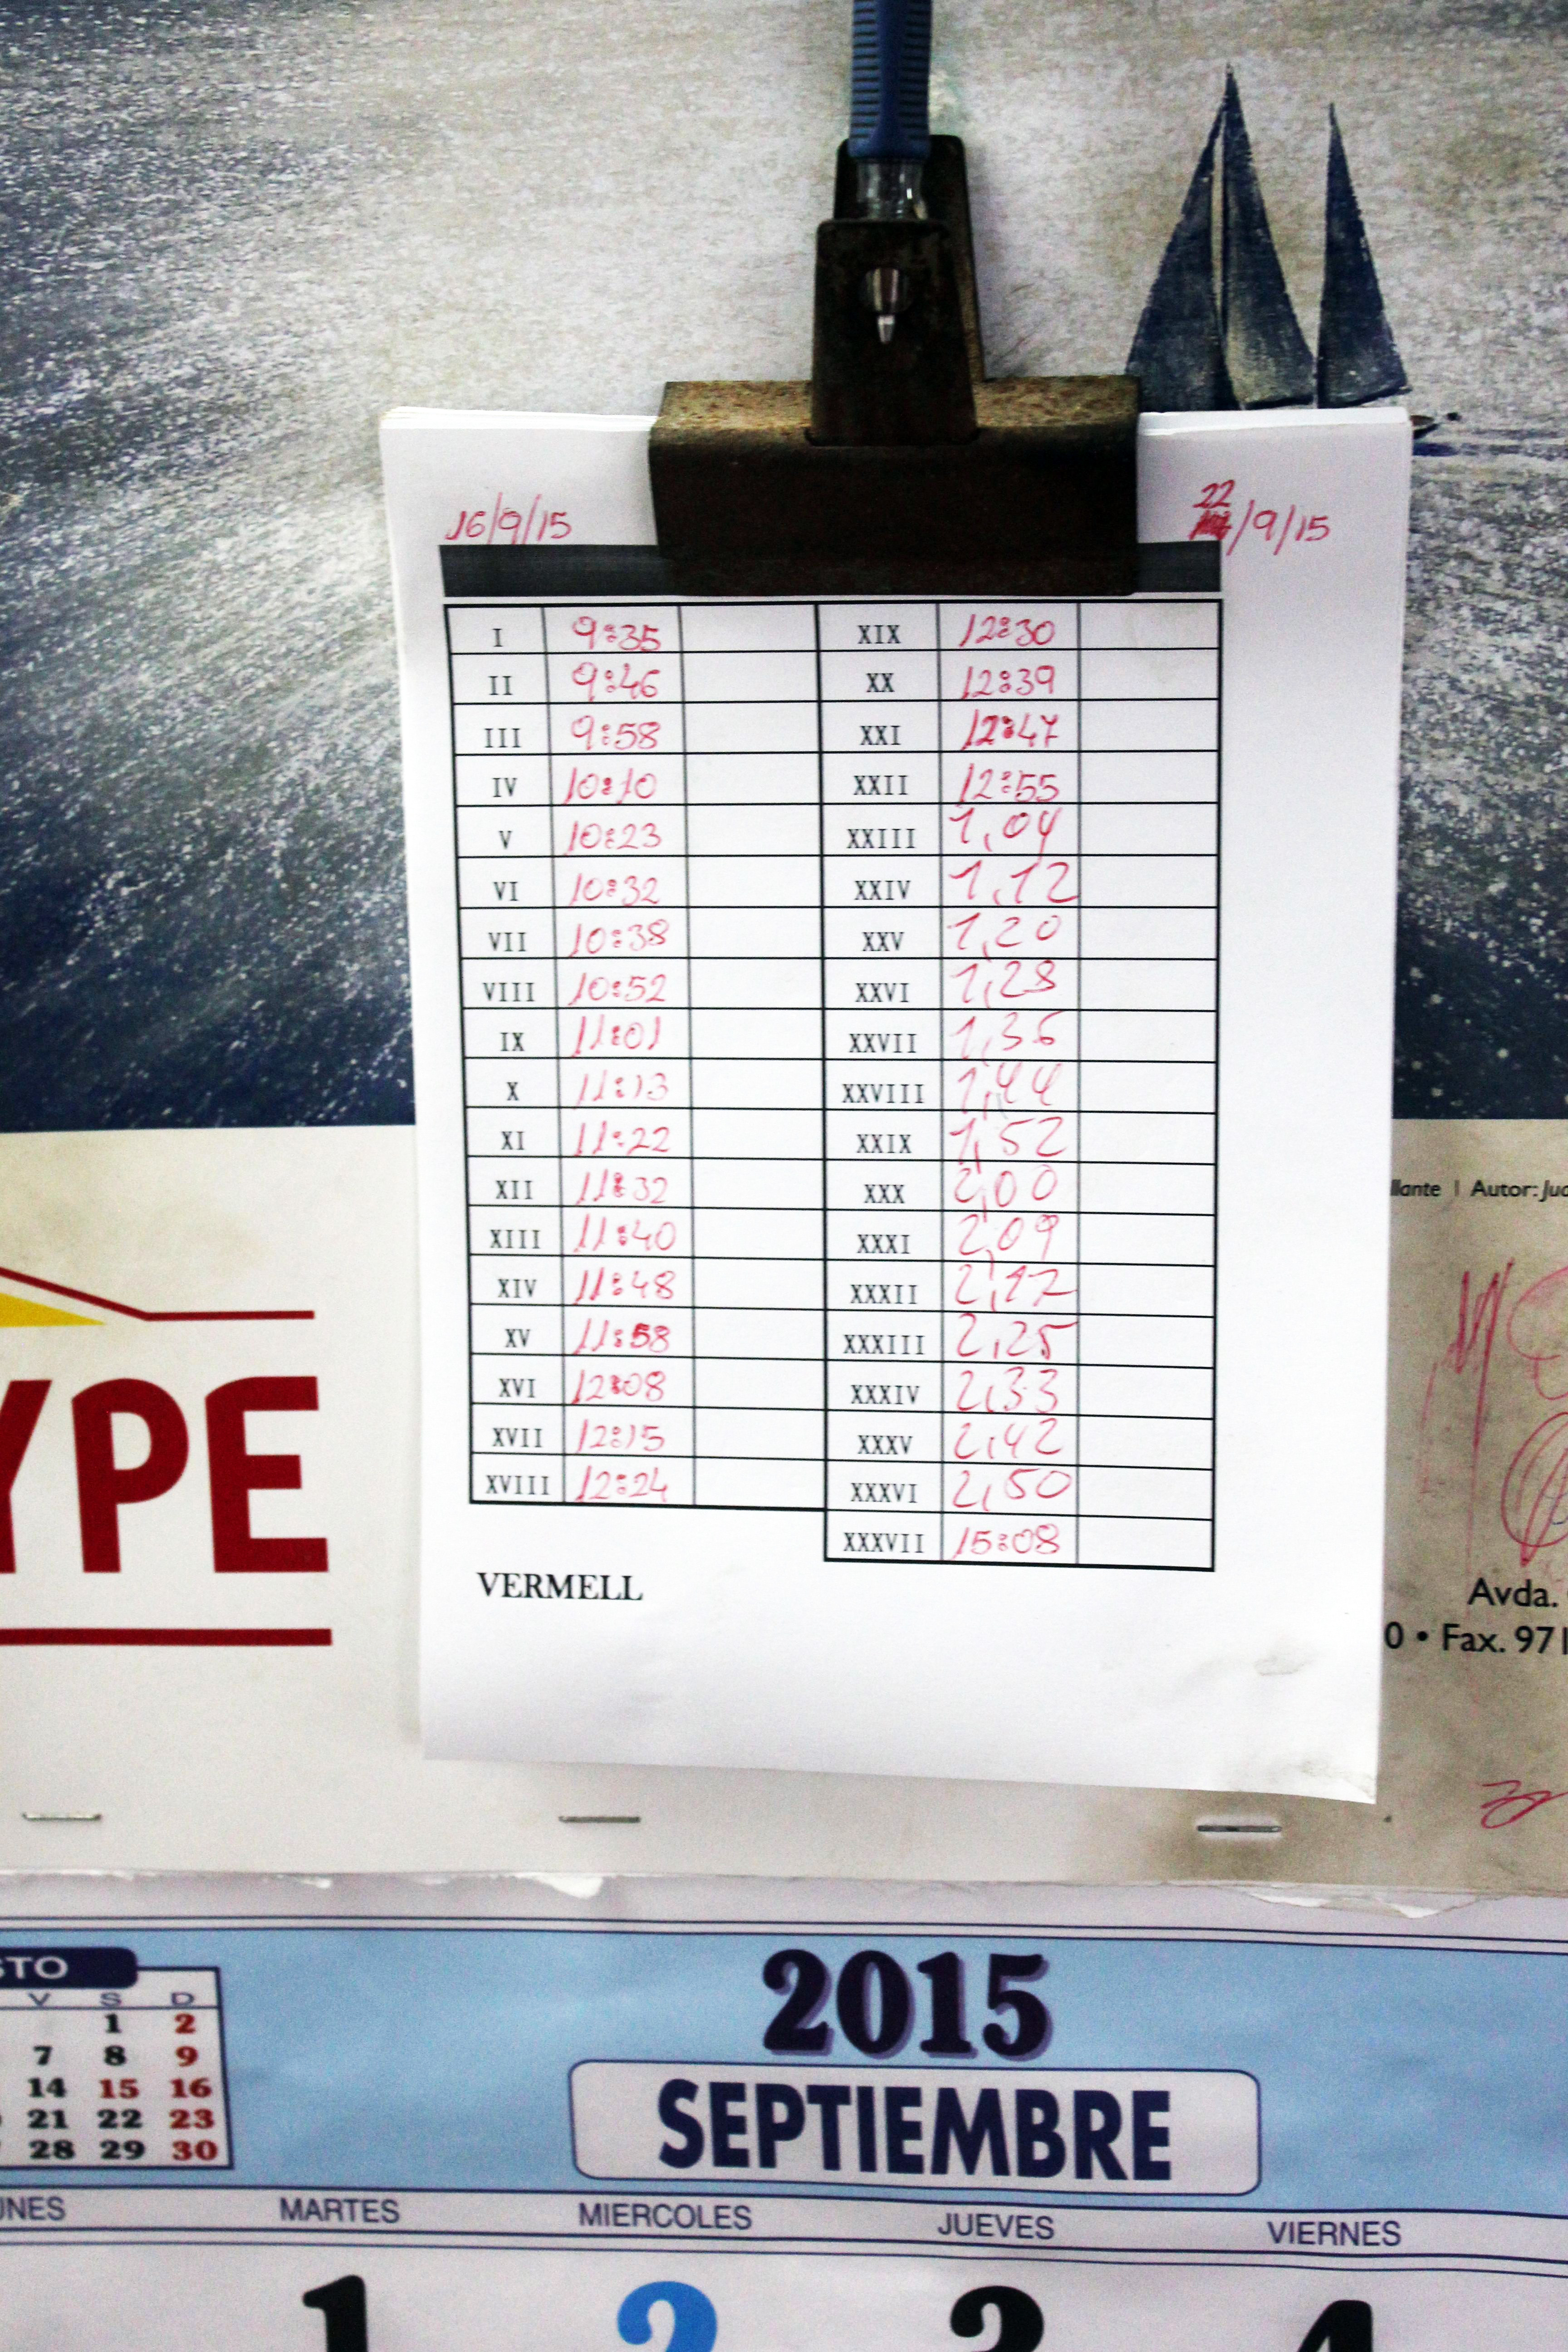 16/9/15
22/9/15
I 9:35 XIX 12:30
II 9:46 XX 12:39
III 9:58 XXI 12:47
IV 10:10 XXII 12:55
V 10:23 XXIII 1,04
VI 10:32 XXIV 1,12
VII 10:38 XXV 1,20
VIII 10:52 XXVI 1,28
IX 11:01 XXVII 1,36
X 11:13 XXVIII 1,44
XI 11:22 XXIX 1,52
XII 11:32 XXX 2,00
XIII 11:40 XXXI 2,09
XIV 11:48 XXXII 2,17
XV 11:58 XXXIII 2,25
XVI 12:08 XXXIV 2,33
XVII 12:15 XXXV 2,42
XVIII 12:24 XXXVI 2,50
XXXVII 15:08
VERMELL
YPE
llante | Autor: Jua
Avda.
0 • Fax. 971
STO
V S D
1 2
7 8 9
14 15 16
21 22 23
28 29 30
2015
SEPTIEMBRE
UNES MARTES MIERCOLES JUEVES VIERNES
1 2 3 4